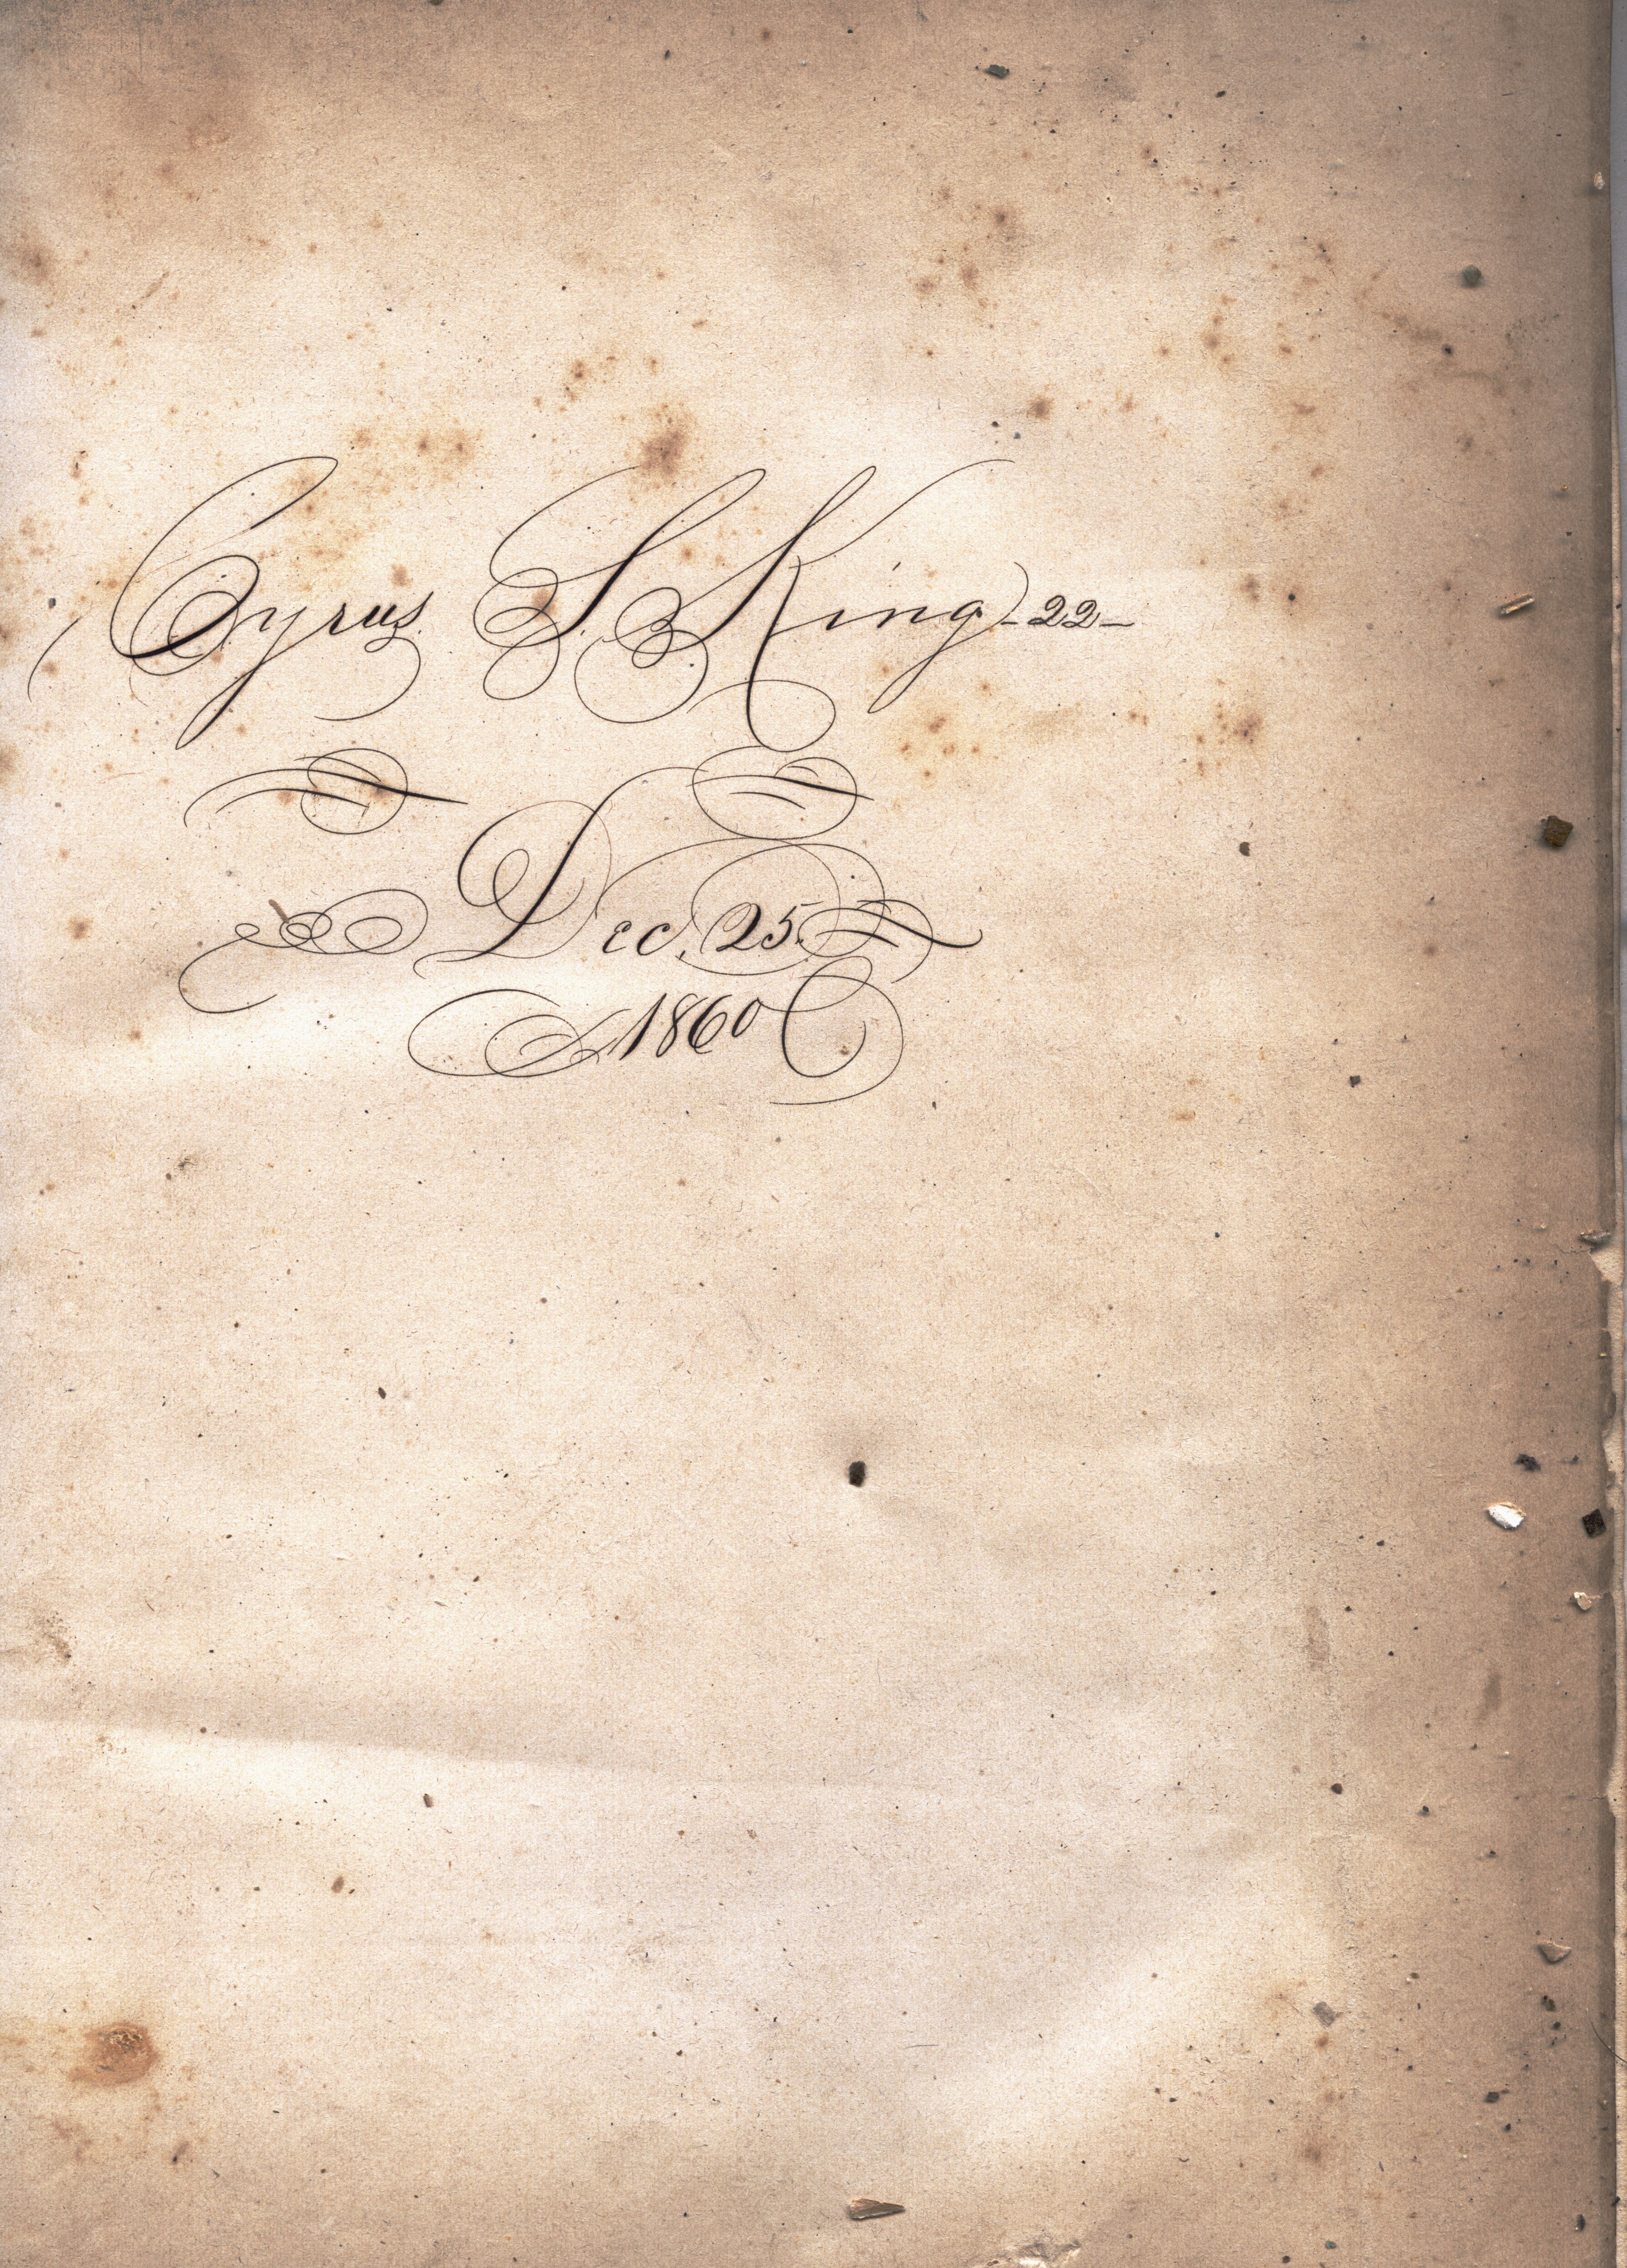 Cyrus S. King -22-
Dec. 25.
1860